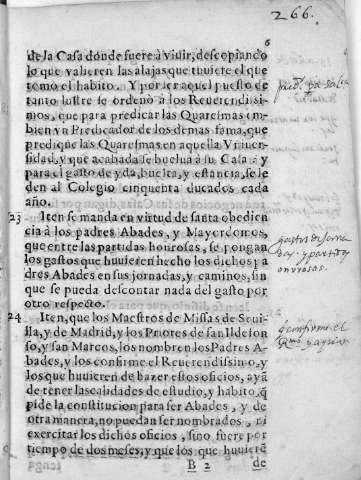 266.
6
de la Casa donde fuere à viuir, descopiando
lo que valieren las alajas que tuuiere el que
tomo el habito. Y por ser aquel puesto de
tanto lustre se ordenò a los Reuerendissi-
mos, que para predicar las Quaresmas em-
bien vn Predicador de los de mas fama, que
predique las Quaresmas en aquella Vniuer-
sidad, y que acabada se buelua à su Casa: y
para el gasto de yda, buelta, y estancia, se le
den al Colegio cinquenta ducados cada
año.
23 Iten se manda en virtud de santa obedien
cia à los padres Abades, y Mayordomos,
que entre las partidas honrosas, se pongan
los gastos que huuieren hecho los dichos pa
dres Abades en sus jornadas, y caminos, sin
que se pueda descontar nada del gasto por
otro respecto.
24 Iten, que los Maestros de Missas de Seui-
lla, y de Madrid, y los Priores de san Ildefon
so, y san Marcos, los nombren los Padres A-
bades, y los confirme el Reuerendissimo, y
los que huuieren de hazer estos oficios, ayã
de tener las calidades de estudio, y habito, q̃
pide la constitucion para ser Abades, y de
otra manera, no puedan ser nombrados, ni
exercitar los dichos oficios, sino fuere por
tiempo de dos meses, y que los que huuierẽ
B 2 de
gastos de jorna
das y partidas
onrosas.